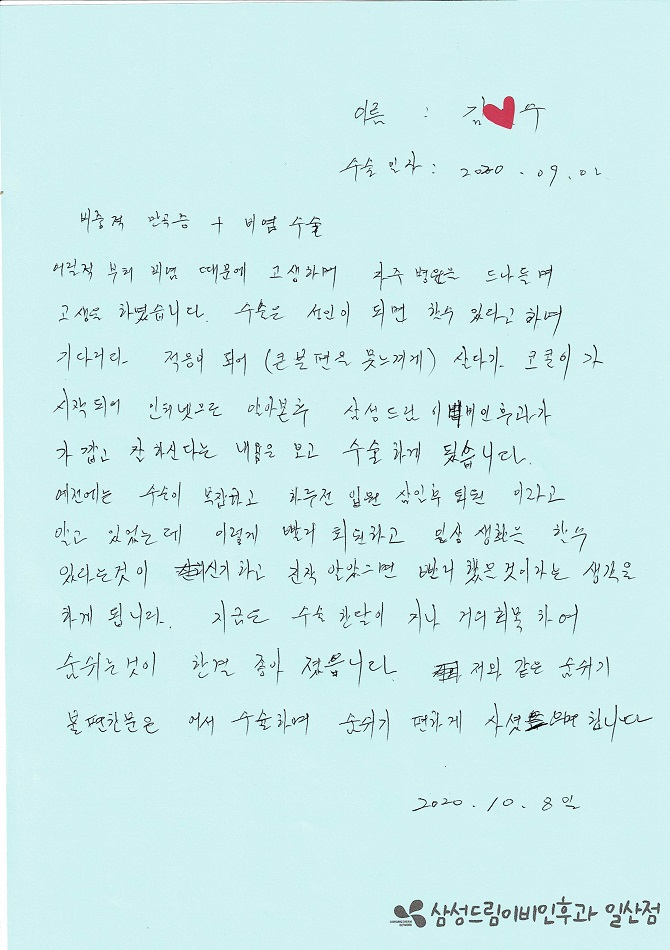 이름 : 김 수
수술 일자 : 2020.09.02
비중격 만곡증 + 비염 수술
어릴적 부터 비염 때문에 고생하며 자주 병원을 드나들며
고생을 하였습니다. 수술은 성인이 되면 할수 있다고 하여
기다리다. 적응이 되어 (큰 불편을 못느끼게) 살다가. 코콜이 가
시작되어 인터넷으로 알아본후 삼성드림 이비인후과가
가깝고 잘 하신다는 내용을 보고 수술하게 됬습니다.
예전에는 수술이 복잡하고 하루전 입원 삼일후 퇴원 이라고
알고 있었는데 이렇게 빨리 퇴원하고 일상 생활을 할수
있다는것이 신기하고 진작 알았으면 빨리 했을것이라는 생각을
하게 됩니다. 지금은 수술 한달이 지나 거의회복 하여
숨쉬는것이 한결 좋아 졌습니다. 저와 같은 숨쉬기
불편한분은 어서 수술하여 숨쉬기 편하게 사셨으면 합니다
2020.10.8일
삼성드림이비인후과 일산점